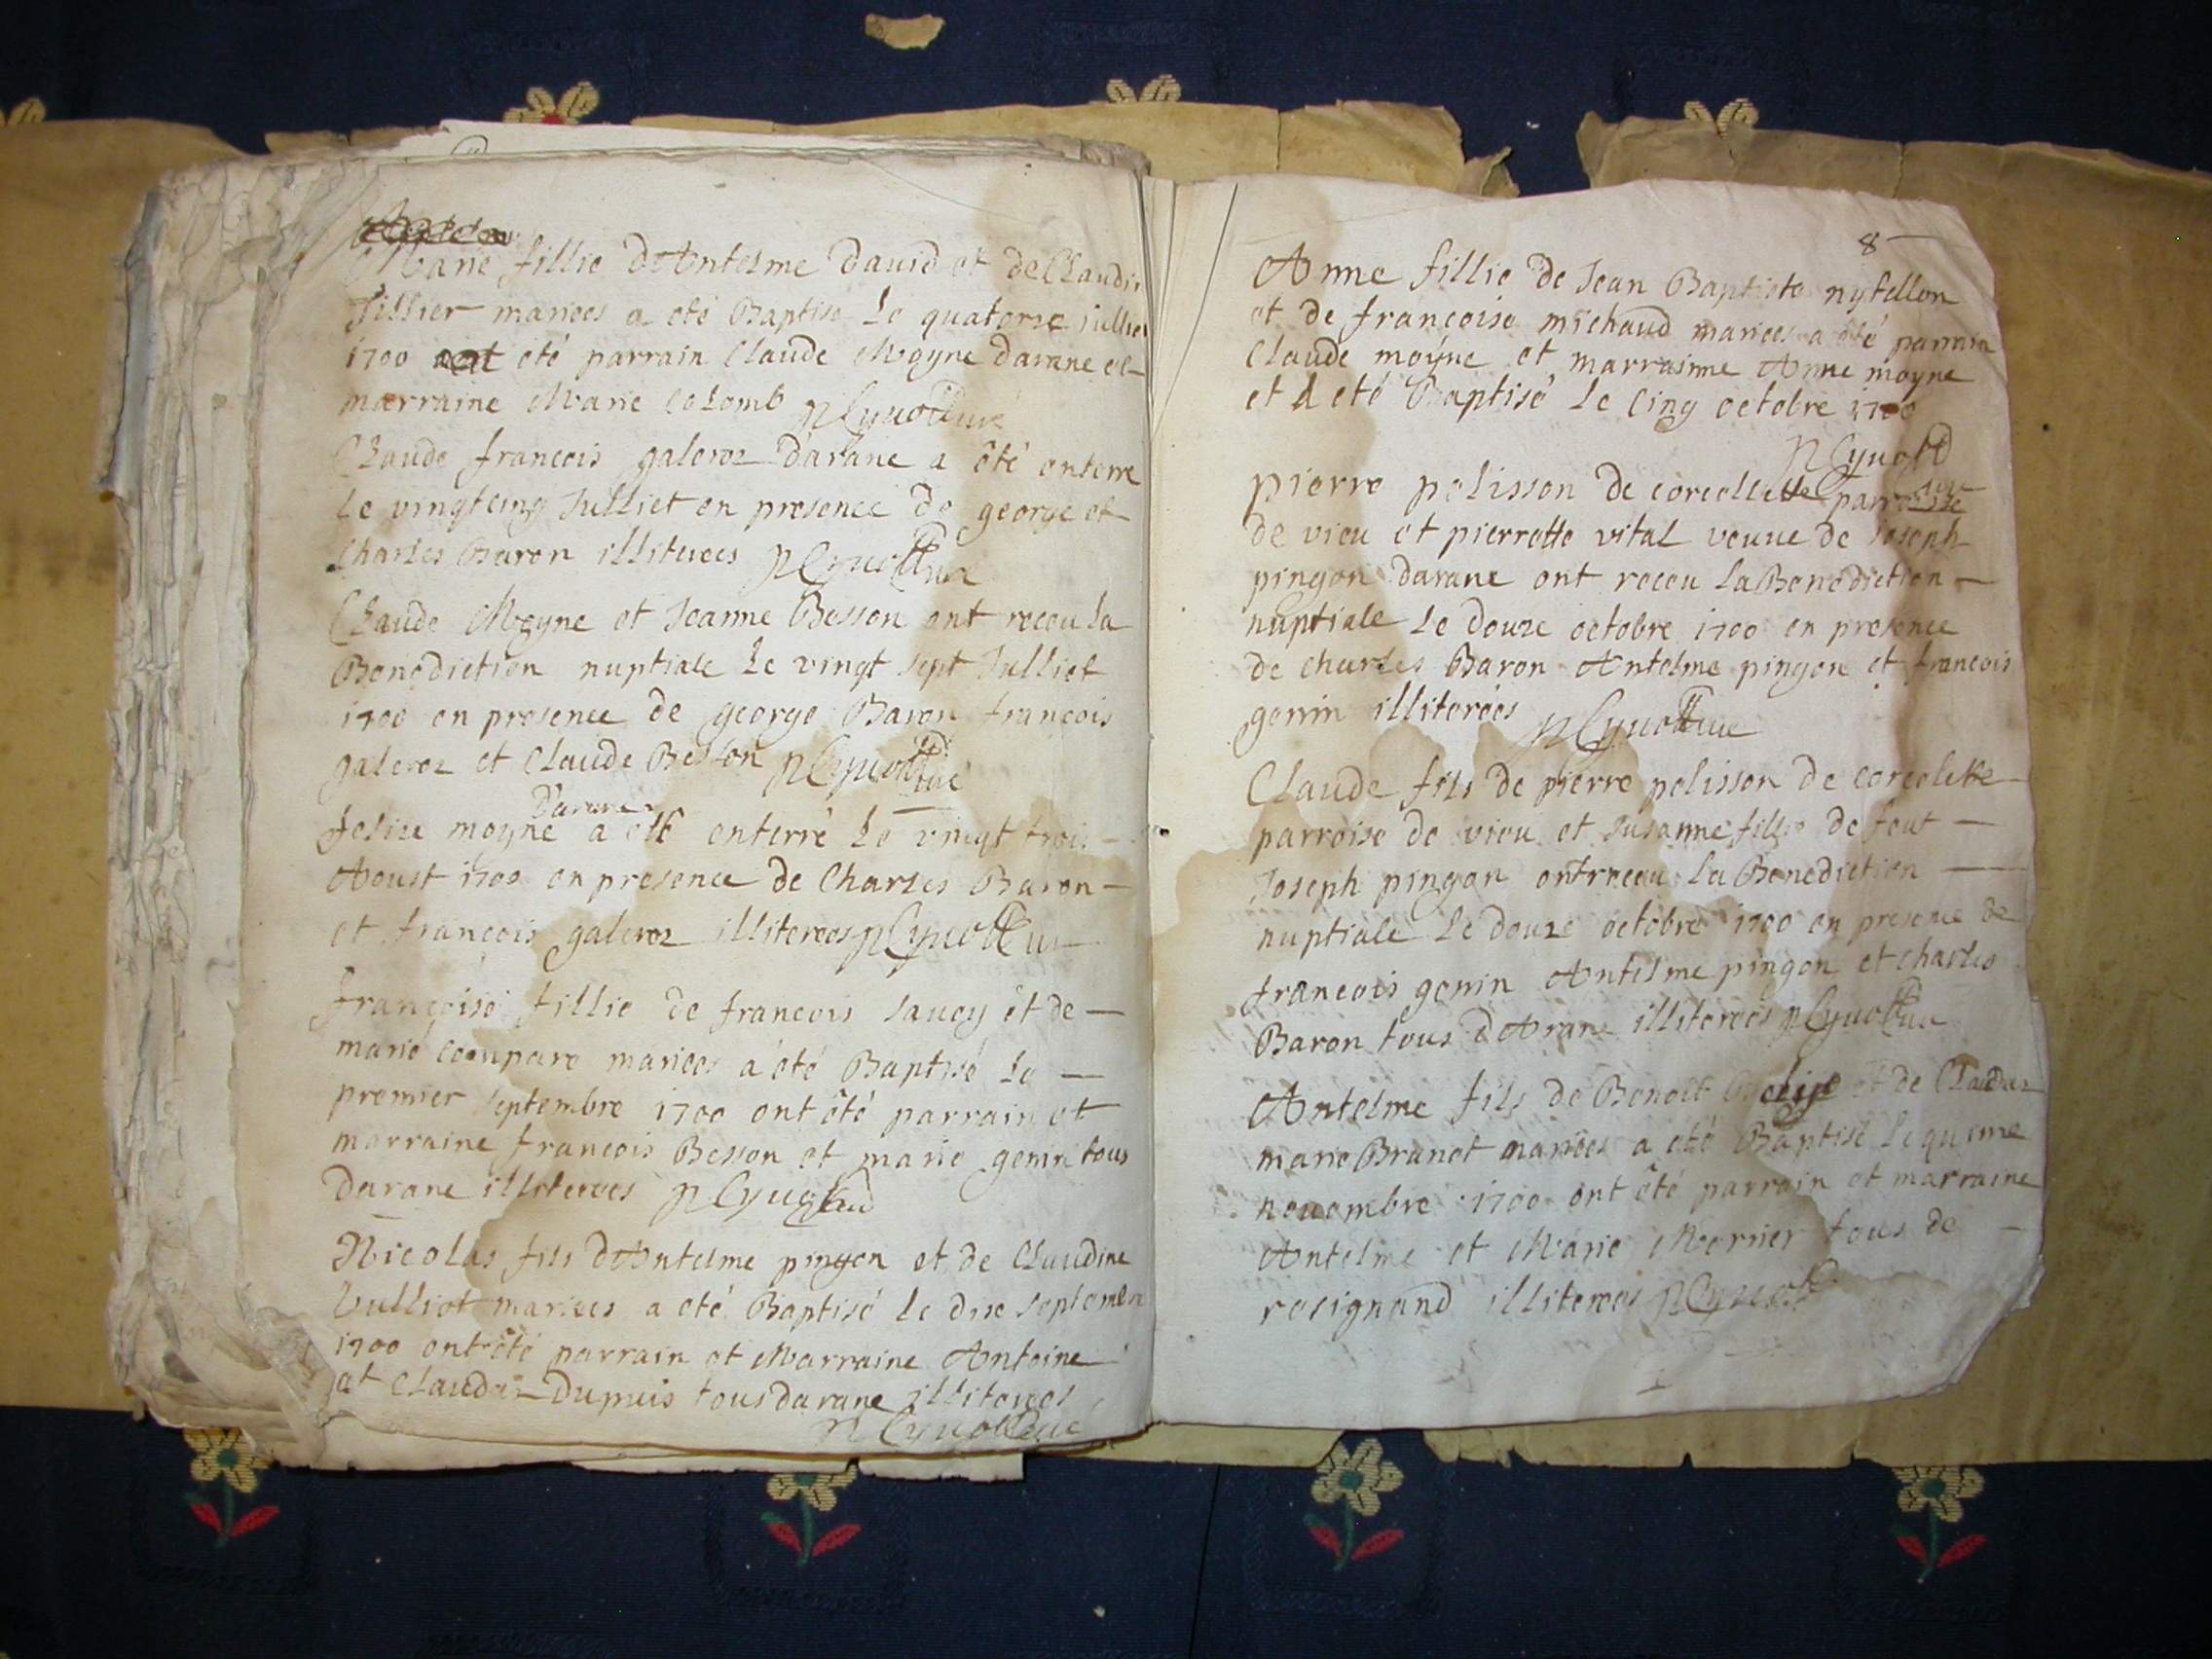 Marie fillie dAntelme David et de Claudi
Tillier mariees a eté Baptise le quatorze jullie
1700 eté parrain Claude Moyne darane et
marraine Marie Colomb
Claude francois galeroz darane a êté enterre
le vingtcinq Julliet en presence de george et
Charles Baron illiterees
Claude Moyne et Jeanne Besson ont receu la
Benediction nuptiale le vingt sept Julliet
1700 en presence de george Baron francois
galeroz et Claude Besson
Darane
moyne a eté enterré le vingt trois
Aoust 1700 en presence de Charles Baron
et francois galeroz illiterees
francoise fillie de francois saucy et de
marie compare mariees a été Baptisé le
premier septembre 1700 ont êté parrain et
marraine francois Besson et marie genin tous
darane illiterees
Nicolas fils dAntelme pingon et de Claudine
Vulliot mariees a eté Baptisé le dix septembre
1700 ont êté parrain et Marraine Antoine
et Claudaz Dupuis tous darane illiterees
8
Anne fillie de Jean Baptiste
et de francoise michaud mariees a êté parrain
Claude moyne et marraine Anne moyne
et A eté Baptisé le Cinq octobre 1700
pierre polisson de corcelette parroisse
de vieu et pierrette vital veuve de Joseph
pingon darane ont receu la Benediction
nuptiale le douze octobre 1700 en presence
de charles Baron Antelme pingon et francois
genin illiterées
Claude fils de pierre polisson de corcelette
parroise de vieu et Susanne fillie de feut
Joseph pingon ont receu la Benediction
nuptiale le douze octobre 1700 en presence de
francois genin Antelme pingon et charles
Baron tous dArane illiterees
Antelme fils de Benoit et de Claudaz
marie Brunet mariees a eté Baptisé le quinze
novembre 1700 ont êté parrain et marraine
Antelme et Marie Mornier tous de
rosignand illiterees